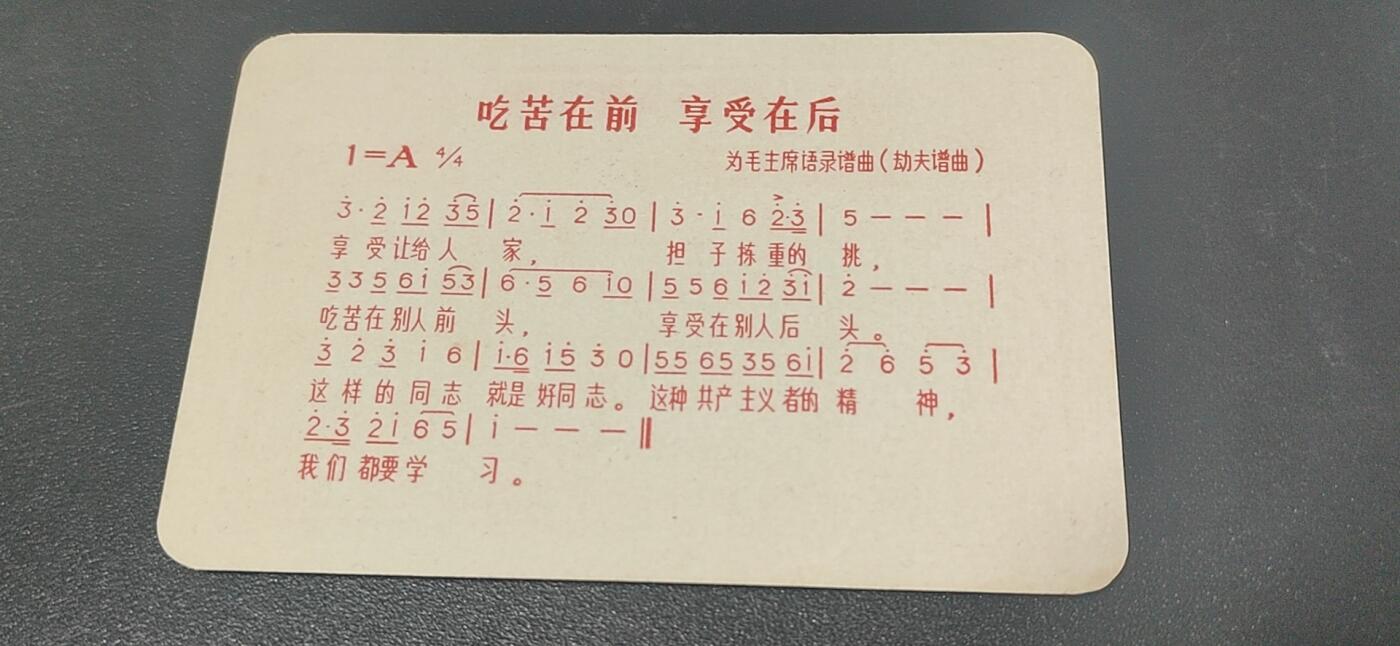 吃苦在前 享受在后
1=A 4/4 为毛主席语录谱曲(劫夫谱曲)
3̇·2̇ 1̇2̇ 3̇5̇ | 2̇·1̇ 2̇ 3̇0 | 3̇·1̇ 6 2̇·3̇ | 5 — — — |
享受让给人家, 担子拣重的挑,
3 3 5 6 1̇ 5̇3̇ | 6·5 6 1̇0 | 5 5 6 1̇ 2̇ 3̇1̇ | 2̇ — — — |
吃苦在别人前头, 享受在别人后头。
3̇ 2̇ 3̇ 1̇ 6 | 1̇·6 1̇5 3̇ 0 | 55 65 35 61̇ | 2̇ 6̇ 5̇ 3̇ |
这样的同志 就是好同志。这种共产主义者的精神,
2̇·3̇ 2̇1̇ 6 5 | 1̇ — — — ‖
我们都要学习。